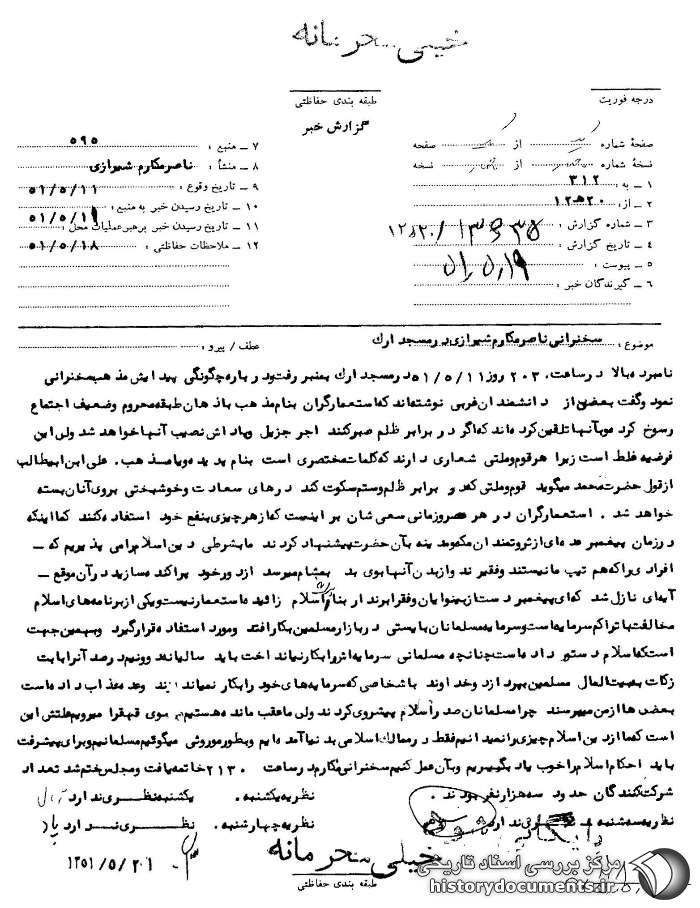 خیلی محرمانه
طبقه بندی حفاظتی
درجه فوریت
گزارش خبر
صفحهٔ شماره از صفحه
نسخهٔ شماره از نسخه
۱ ــ به : ۳۱۲
۲ ــ از : ۲۰ ه‍ ۱۲
۳ ــ شماره گزارش :
۴ ــ تاریخ گزارش :
۵ ــ پیوست :
۶ ــ گیرندگان خبر :
۷ ــ منبع : ۵۹۵
۸ ــ منشأ : ناصر مکارم شیرازی
۹ ــ تاریخ وقوع : ۵۱/۵/۱۱
۱۰ ــ تاریخ رسیدن خبر به منبع :
۱۱ ــ تاریخ رسیدن خبر برهبر عملیات محل :
۱۲ ــ ملاحظات حفاظتی : ۵۱/۵/۱۸
موضوع : سخنرانی ناصر مکارم شیرازی در مسجد ارك
عطف / پیرو :
نامبرده بالا در ساعت ۲۰۳۰ روز ۵۱/۵/۱۱ در مسجد ارك بمنبر رفت و درباره چگونگی پیدایش مذهب سخنرانی
نمود و گفت بعضی از دانشمندان غربی نوشته‌اند که استعمارگران بنام مذهب باذهان طبقه محروم و ضعیف اجتماع
رسوخ کرده و بآنها تلقین کرده‌اند که اگر در برابر ظلم صبر کنند اجر جزیل و پاداش نصیب آنها خواهد شد ولی این
فرضیه غلط است زیرا هر قوم و ملتی شعاری دارند که کلمات مختصری است بنام پدیده و یا مذهب. علی ابن ابیطالب
از قول حضرت محمد میگوید قوم و ملتی که در برابر ظلم و ستم سکوت کند درهای سعادت و خوشبختی بروی آنان بسته
خواهد شد . استعمارگران در هر عصر و زمانی سعی شان بر اینست که از هر چیزی بنفع خود استفاده کنند کما اینکه
در زمان پیغمبر عده‌ای از ثروتمندان مکه و مدینه بآن حضرت پیشنهاد کردند ما بشرطی دین اسلام را می پذیریم که ــ
افرادی را که هم تیپ ما نیستند و فقیرند و از بدن آنها بوی بد بمشام میرسد از دور خود پراکنده سازید در آن موقع ــ
آیه‌ای نازل شد که ای پیغمبر دست از بینوایان و فقرا بر ندار بنابراین اسلام زائیده استعمار نیست و یکی از برنامه‌های اسلام
مخالفت با تراکم سرمایه است و سرمایه مسلمانان بایستی در بازار مسلمین بکار افتد و مورد استفاده قرار گیرد و بهمین جهت
است که اسلام دستور داده است چنانچه مسلمانی سرمایه‌اش را بکار نیانداخت باید سالیانه دو و نیم درصد آنرا بابت
زکات به بیت المال مسلمین بپردازد و خداوند باشخاصی که سرمایه‌های خود را بکار نمیاندازند وعده عذاب داده است
بعضی ها از من میپرسند چرا مسلمانان صدر اسلام پیشروی کردند ولی ما عقب مانده هستیم و بسوی قهقرا میرویم علتش این
است که ما از دین اسلام چیزی را نمیدانیم فقط در ممالك اسلامی بدنیا آمده ایم و بطور موروثی میگوئیم مسلمانیم و برای پیشرفت
باید احکام اسلام را خوب یاد بگیریم و بآن عمل کنیم سخنرانی مکارم در ساعت ۲۱۳۰ خاتمه یافت و مجلس ختم شد تعداد
شرکت کنندگان حدود سه هزار نفر بودند .
نظریه یکشنبه . یکشنبه نظری ندارد
نظریه سه شنبه ــ نظری ندارد
نظریه چهارشنبه . نظری ندارد
۱۳۵۱/۵/۲۱
خیلی محرمانه
طبقه بندی حفاظتی
مرکز بررسی اسناد تاریخی
historydocuments.ir